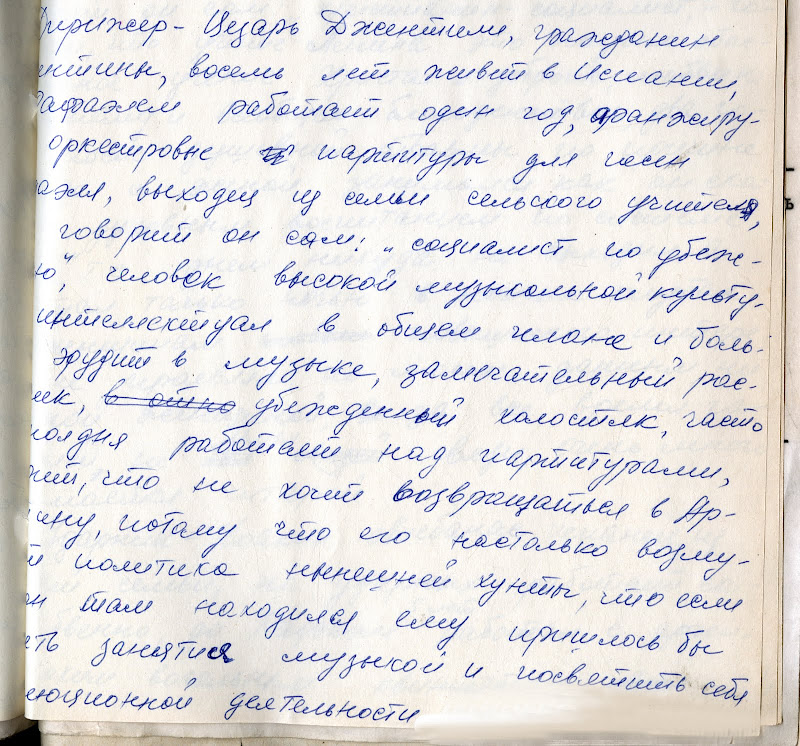 Дирижер - Цезарь Джентили, гражданин
нтины, восемь лет живет в Испании,
Рафаэлем работает один год, аранжиру-
оркестровые партитуры для песен
аэля, выходец из семьи сельского учителя,
говорит он сам: „социалист по убеж-
ю", человек высокой музыкальной культу-
интеллектуал в общем плане и боль-
эрудит в музыке, замечательный рас-
ик, убежденный холостяк, часто
полдня работает над партитурами,
рит, что не хочет возвращаться в Ар-
ину, потому что его настолько возму-
ет политика нынешней хунты, что если
он там находился ему пришлось бы
ить занятия музыкой и посвятить себя
люционной деятельности